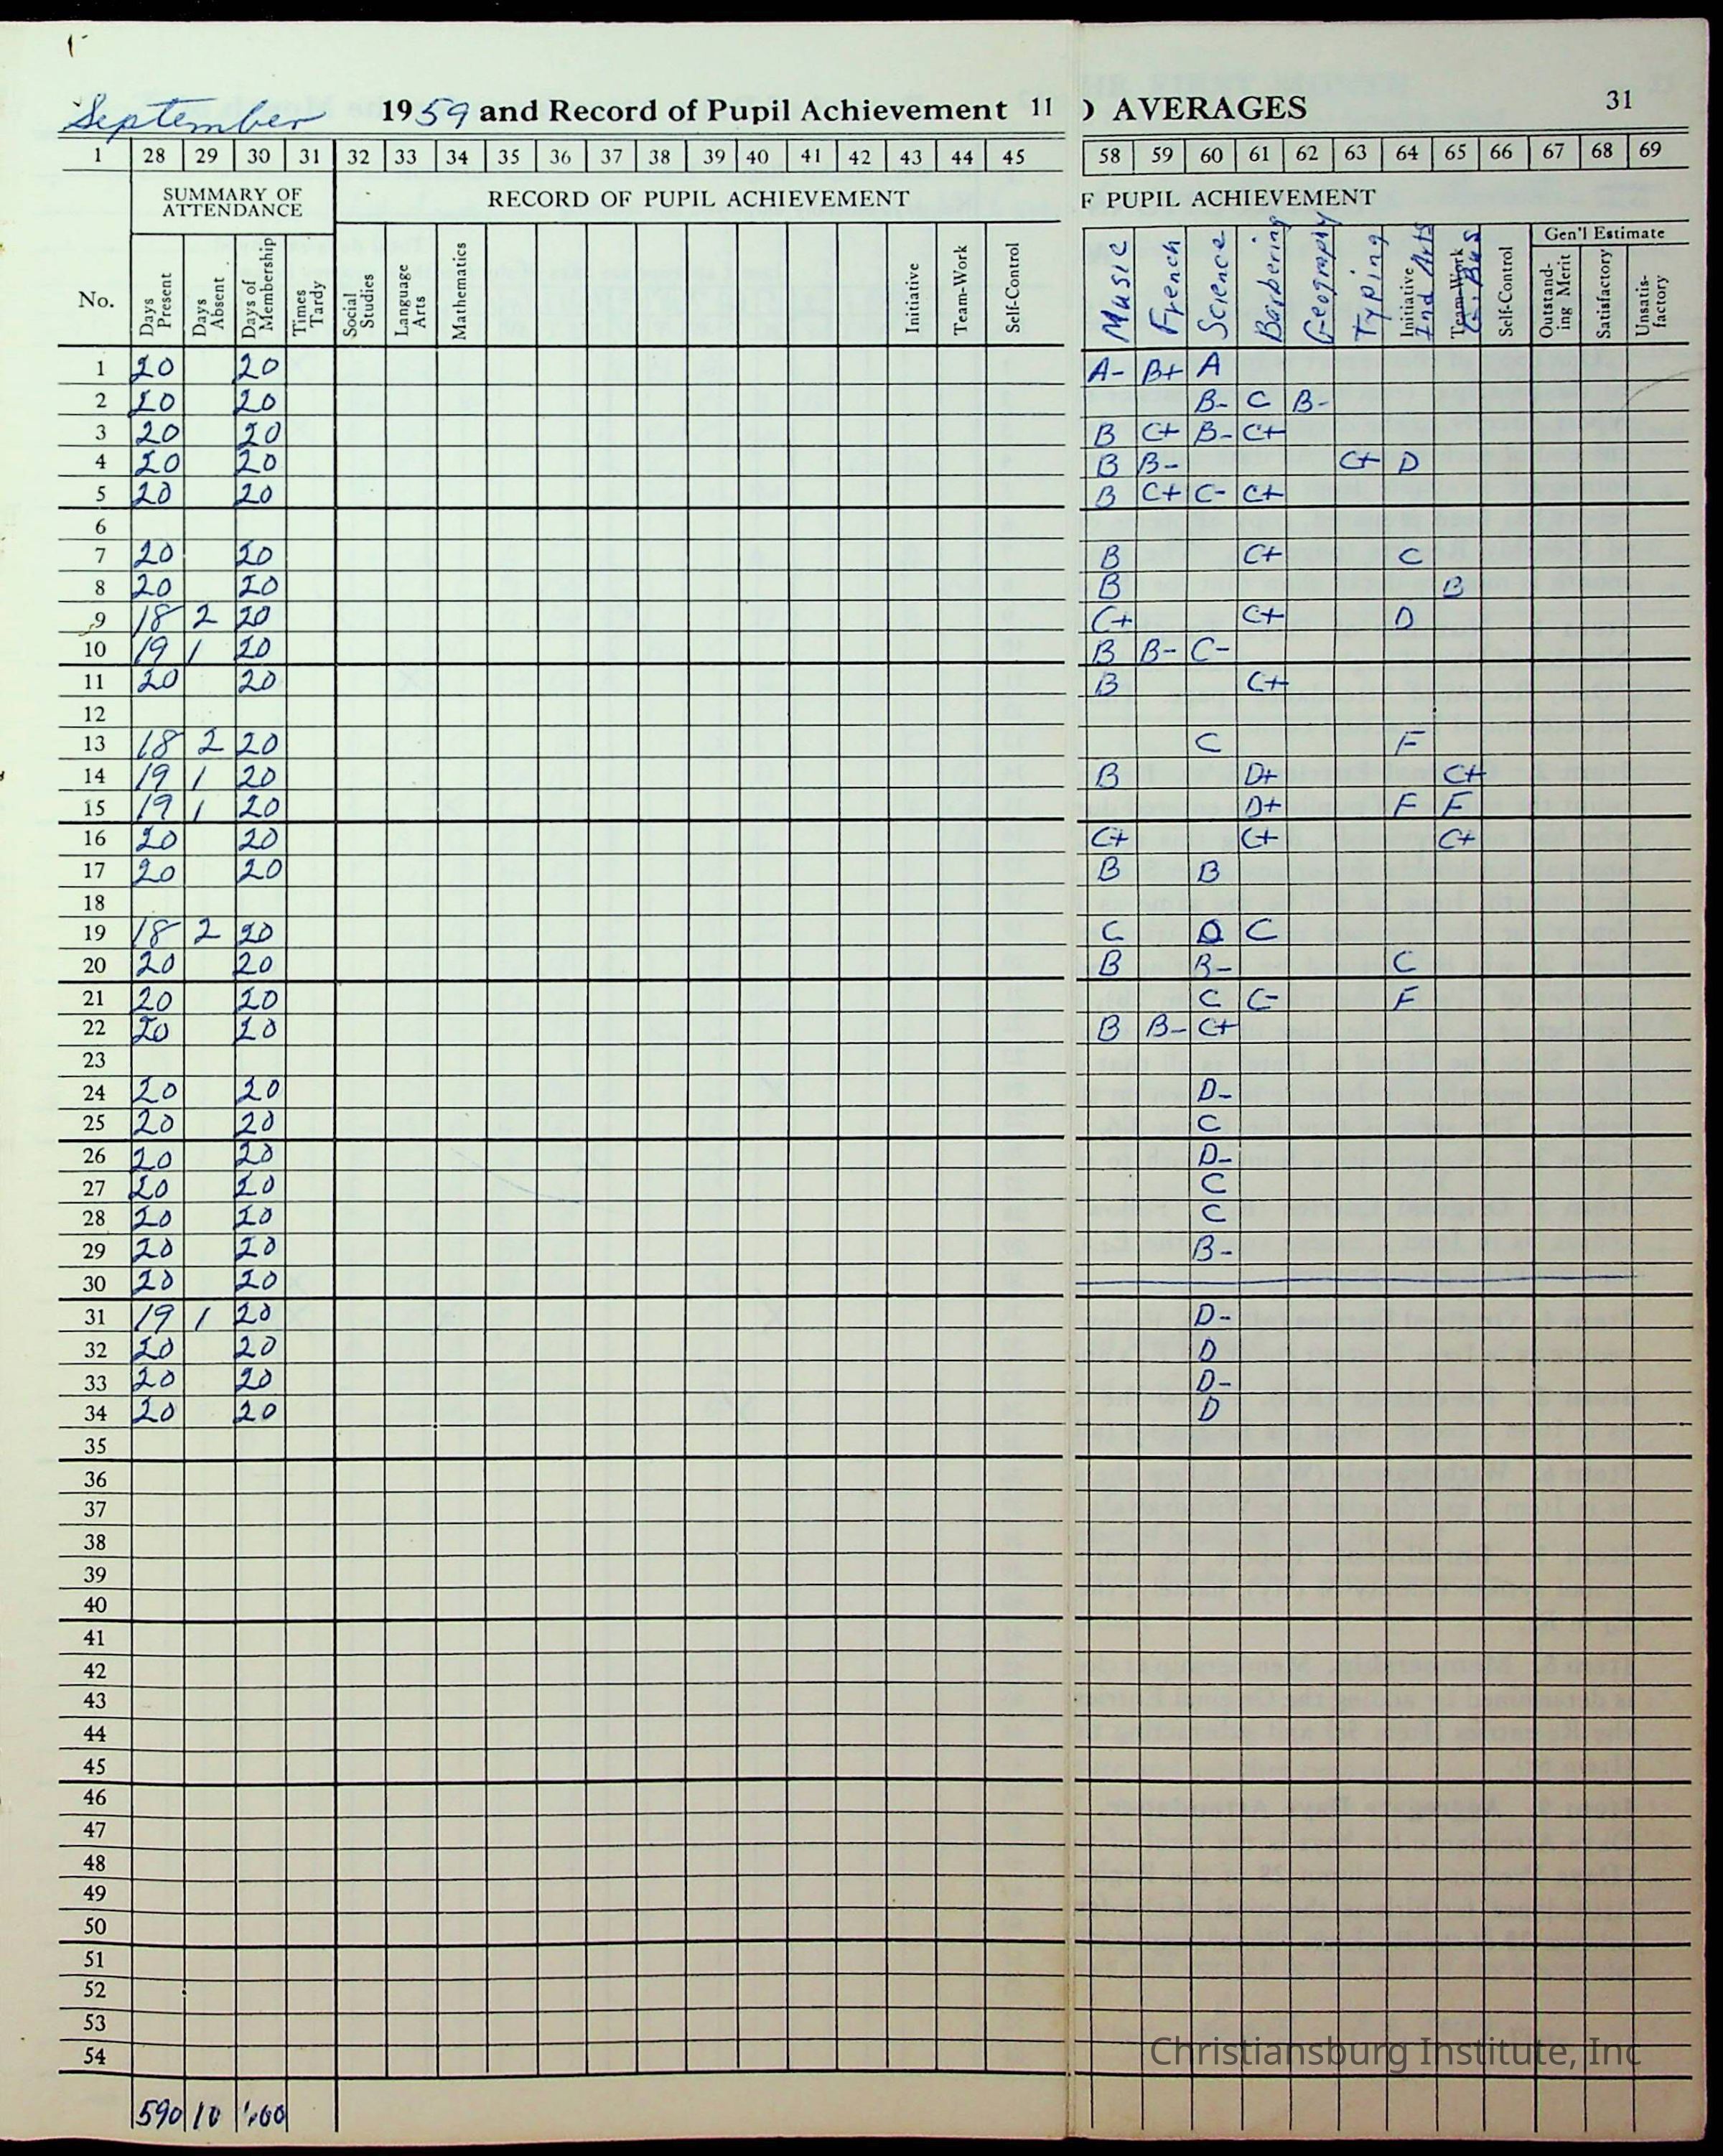 September 1959 and Record of Pupil Achievement 11 ) AVERAGES 31
1 28 29 30 31 32 33 34 35 36 37 38 39 40 41 42 43 44 45 58 59 60 61 62 63 64 65 66 67 68 69
SUMMARY OF ATTENDANCE RECORD OF PUPIL ACHIEVEMENT F PUPIL ACHIEVEMENT
Gen'l Estimate
No. Days Present Days Absent Days of Membership Times Tardy Social Studies Language Arts Mathematics Initiative Team-Work Self-Control Music French Science Barbering Geography Typing Initiative Ind Arts Team-Work G. Bus Self-Control Outstanding Merit Satisfactory Unsatisfactory
1 20 20 A- B+ A
2 20 20 B- C B-
3 20 20 B C+ B- C+
4 20 20 B B- C+ D
5 20 20 B C+ C- C+
6
7 20 20 B C+ C
8 20 20 B B
9 18 2 20 C+ C+ D
10 19 1 20 B B- C-
11 20 20 B C+
12
13 18 2 20 C F
14 19 1 20 B D+ C+
15 19 1 20 D+ F F
16 20 20 C+ C+ C+
17 20 20 B B
18
19 18 2 20 C D C
20 20 20 B B- C
21 20 20 C C- F
22 20 20 B B- C+
23
24 20 20 D-
25 20 20 C
26 20 20 D-
27 20 20 C
28 20 20 C
29 20 20 B-
30 20 20
31 19 1 20 D-
32 20 20 D
33 20 20 D-
34 20 20 D
35
36
37
38
39
40
41
42
43
44
45
46
47
48
49
50
51
52
53
54
Christiansburg Institute, Inc
590 10